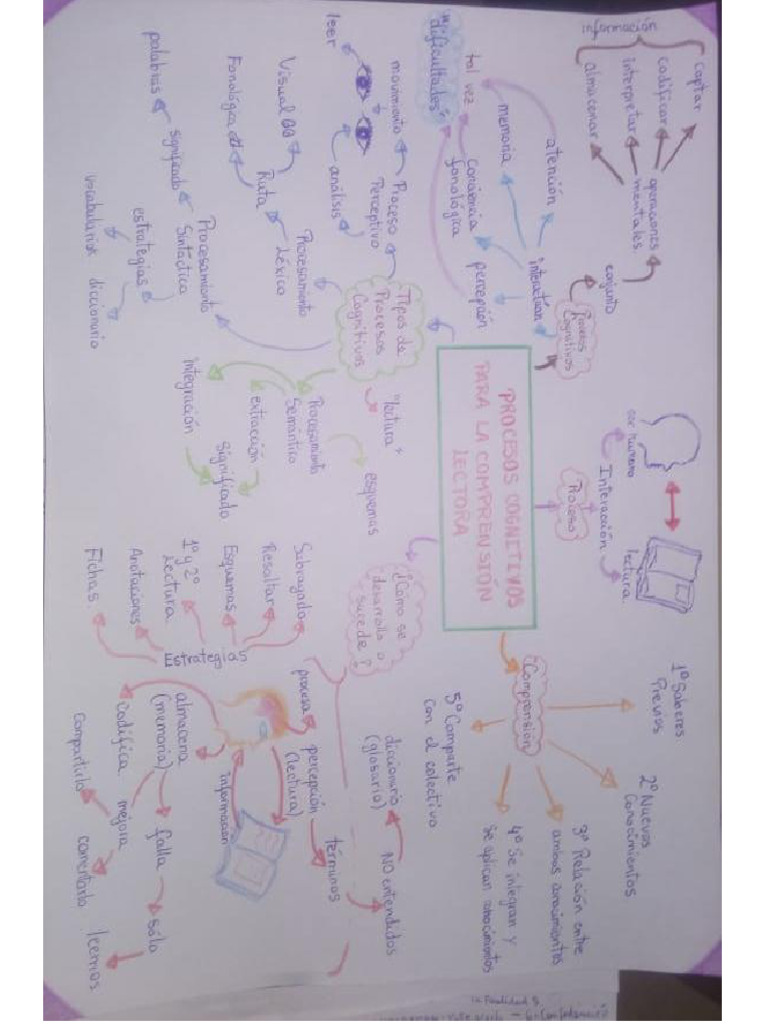 PROCESOS COGNITIVOS
PARA LA COMPRENSIÓN
LECTORA
Procesos
Cognitivos
conjunto
operaciones
mentales
captar
codificar
interpretar
almacenar
información
interactúan
atención
memoria
Conciencia
fonológica
percepción
tal vez
"dificultades"
Proceso
Interacción
ser humano
lectura
"Comprensión"
1º Saberes
Previos
2º Nuevos
Conocimientos
3º Relación entre
ambos conocimientos
4º Se integran y
se aplican conocimientos
5º Comparte
con el colectivo
Tipos de
Procesos
Cognitivos
"lectura"
Proceso
Perceptivo
movimiento
análisis
leer
Procesamiento
Léxico
Ruta
Visual
Fonológica
Procesamiento
Sintáctica
significado
palabras
estrategias
vocabulario
diccionario
Procesamiento
Semántico
extracción
Significado
integración
esquemas
¿Cómo se
desarrolla o
sucede?
Estrategias
Subrayado
Resaltar
Esquemas
1º y 2º
Lectura
Anotaciones
Fichas
procesa
percepción
(lectura)
términos
NO entendidos
diccionario
(glosario)
información
almacena
(memoria)
falla
sólo
leemos
codifica
mejora
compartirlo
comentarlo